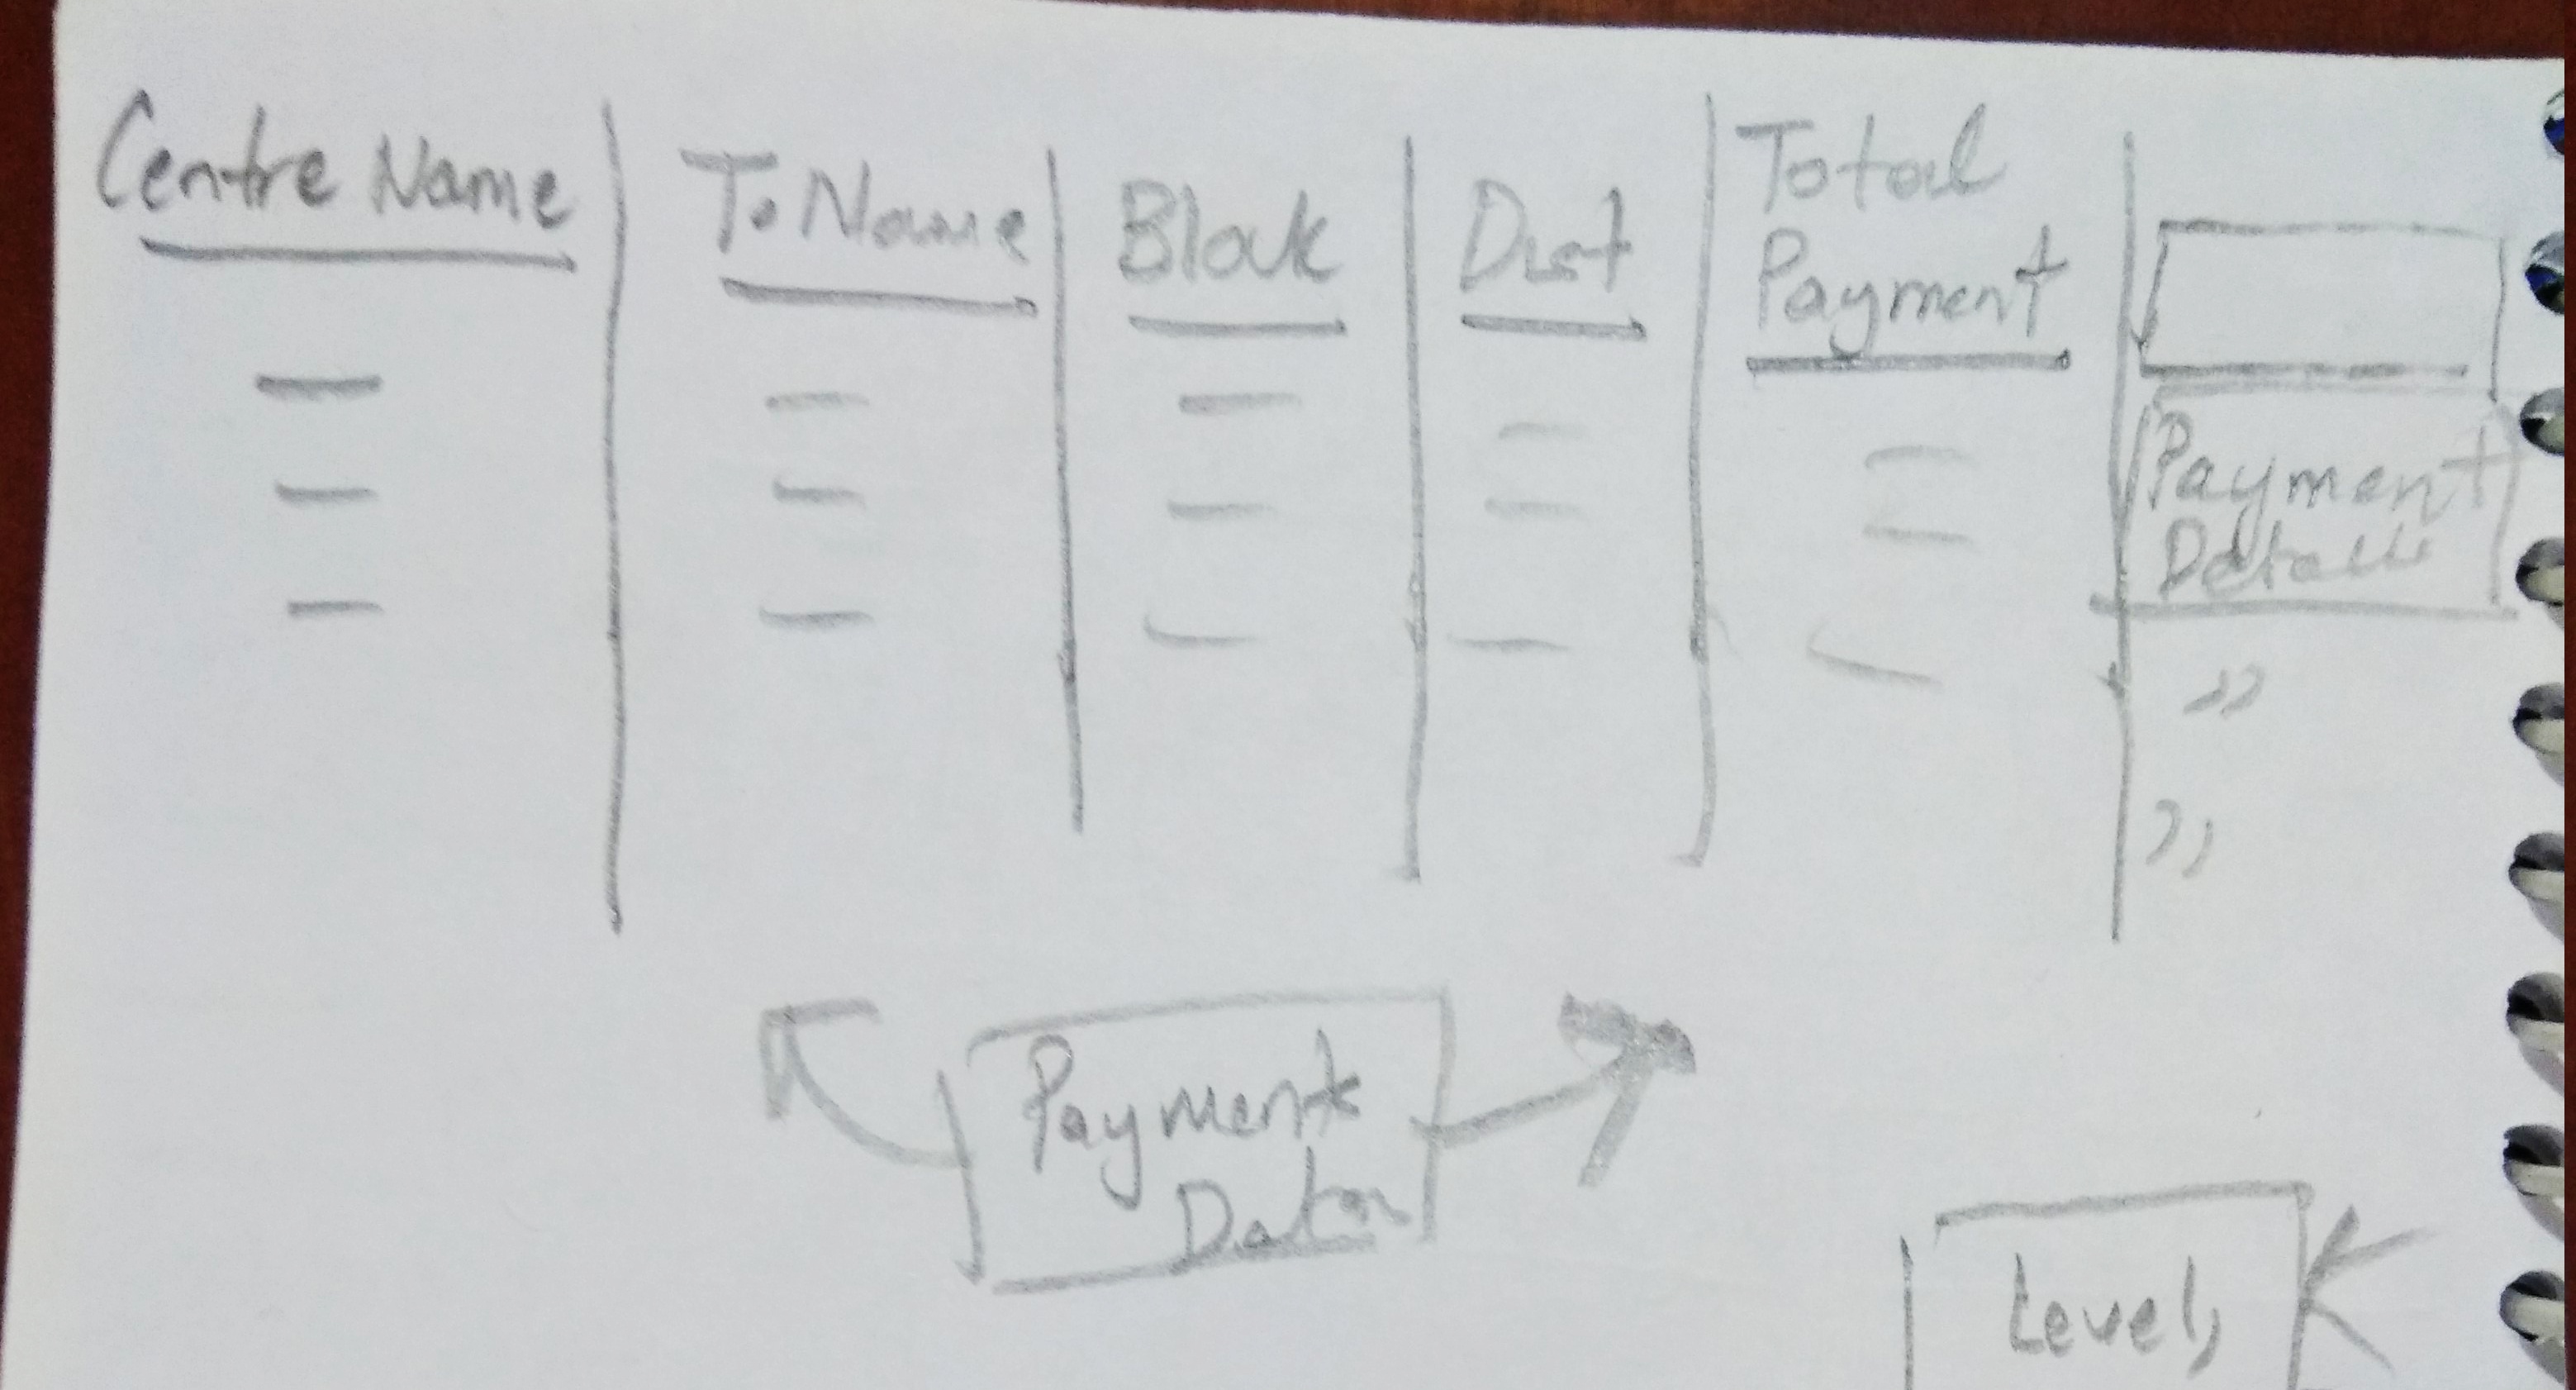 Centre Name
T. Name
Block
Dist
Total
Payment
Payment
Details
”
”
Payment
Data
Level,